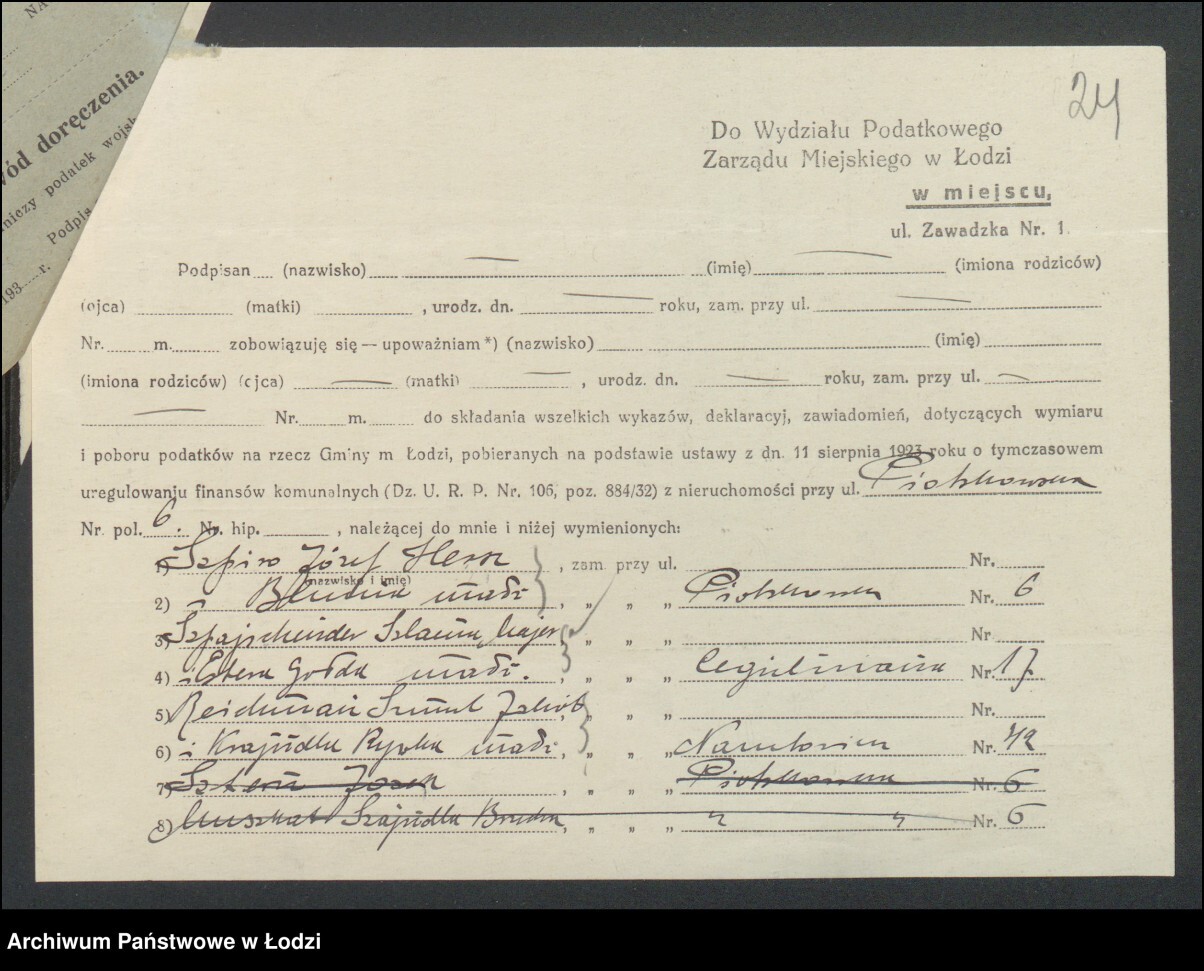 NA
wód doręczenia.
niczy podatek wojsk
Podpis
193 r.
24
Do Wydziału Podatkowego
Zarządu Miejskiego w Łodzi
w miejscu,
ul. Zawadzka Nr. 1.
Podpisan (nazwisko) (imię) (imiona rodziców)
(ojca) (matki) , urodz. dn. roku, zam. przy ul.
Nr. m. zobowiązuję się — upoważniam *) (nazwisko) (imię)
(imiona rodziców) (ojca) (matki) , urodz. dn. roku, zam. przy ul.
Nr. m. do składania wszelkich wykazów, deklaracyj, zawiadomień, dotyczących wymiaru
i poboru podatków na rzecz Gminy m Łodzi, pobieranych na podstawie ustawy z dn. 11 sierpnia 1923 roku o tymczasowem
uregulowaniu finansów komunalnych (Dz. U. R. P. Nr. 106, poz. 884/32) z nieruchomości przy ul. Piotrkowska
Nr. pol. 6. Nr. hip. , należącej do mnie i niżej wymienionych:
1) Szpiro Józef Hersz , zam. przy ul. Nr.
(nazwisko i imię)
2) i małż. , „ „ Piotrkowska Nr. 6
3) Szpajschinder Szlama Majer , „ „ „ Nr
4) i Estera Gołda małż. , „ „ „ Cegielniana Nr. 17
5) Szmul Jakób , „ „ „ Nr.
6) i Krajndla Rywka małż. , „ „ „ Narutowicza Nr. 42
7) Sztern Josek , „ „ „ Piotrkowska Nr. 6
8) Muszkat Szajndla Brucha , „ „ „ „ „ Nr. 6
Archiwum Państwowe w Łodzi